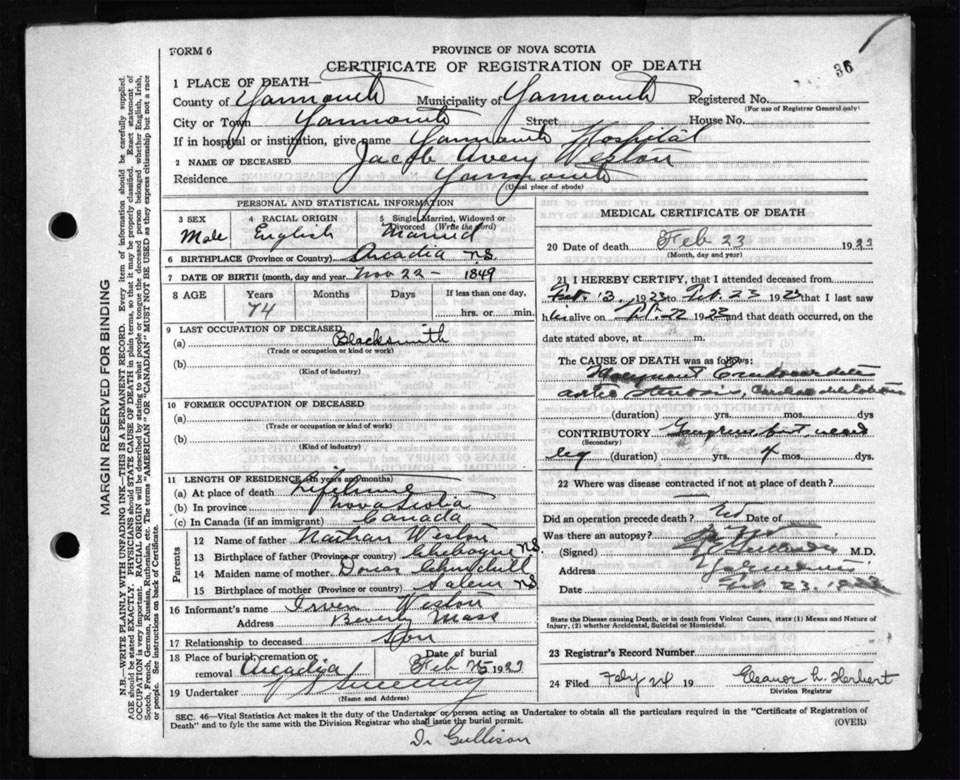 FORM 6
PROVINCE OF NOVA SCOTIA
CERTIFICATE OF REGISTRATION OF DEATH
36
1 PLACE OF DEATH—
County of Yarmouth Municipality of Yarmouth Registered No.
(For use of Registrar General only)
City or Town Yarmouth Street House No.
If in hospital or institution, give name Yarmouth Hospital
2 NAME OF DECEASED Jacob Avery Weston
Residence Yarmouth
(Usual place of abode)
PERSONAL AND STATISTICAL INFORMATION
3 SEX 4 RACIAL ORIGIN 5 Single, Married, Widowed or Divorced (Write the word)
Male English Married
6 BIRTHPLACE (Province or Country) Arcadia N.S.
7 DATE OF BIRTH (month, day and year) Nov 22 - 1849
8 AGE Years Months Days If less than one day,
74 hrs. or min.
9 LAST OCCUPATION OF DECEASED
(a) Blacksmith
(Trade or occupation or kind or work)
(b)
(Kind of industry)
10 FORMER OCCUPATION OF DECEASED
(a)
(Trade or occupation or kind of work)
(b)
(Kind of industry)
11 LENGTH OF RESIDENCE (in years and months)
(a) At place of death Lifetime
(b) In province Nova Scotia
(c) In Canada (if an immigrant) Canada
Parents
12 Name of father Nathan Weston
13 Birthplace of father (Province or country) Chebogue N.S.
14 Maiden name of mother Dorcas Churchill
15 Birthplace of mother (Province or country) Salem N.S.
16 Informant's name Irven Weston
Address Beverly Mass
17 Relationship to deceased Son
18 Place of burial, cremation or removal Arcadia Date of burial Feb 25 1923
19 Undertaker
(Name and Address)
MEDICAL CERTIFICATE OF DEATH
20 Date of death Feb 23 1923
(Month, day and year)
21 I HEREBY CERTIFY, that I attended deceased from
Feb. 3, 1923 to Feb. 23 1923 that I last saw
h alive on Feb. 22 1923 and that death occurred, on the
date stated above, at m.
The CAUSE OF DEATH was as follows:
(duration) yrs. mos. dys
CONTRIBUTORY Gangrene foot
(Secondary)
leg (duration) yrs. 4 mos. dys.
22 Where was disease contracted if not at place of death?
Did an operation precede death? No Date of
Was there an autopsy?
(Signed) M.D.
Address Yarmouth
Date Feb. 23, 1923
State the Disease causing Death, or in death from Violent Causes, state (1) Means and Nature of Injury, (2) whether Accidental, Suicidal or Homicidal.
23 Registrar's Record Number
24 Filed Feby 24 19 Eleanor L. Herbert
Division Registrar
SEC. 46—Vital Statistics Act makes it the duty of the Undertaker or person acting as Undertaker to obtain all the particulars required in the "Certificate of Registration of
Death" and to fyle the same with the Division Registrar who shall issue the burial permit. (OVER)
Dr Gullison
MARGIN RESERVED FOR BINDING
N.B.—WRITE PLAINLY WITH UNFADING INK—THIS IS A PERMANENT RECORD. Every item of information should be carefully supplied.
AGE should be stated EXACTLY. PHYSICIANS should STATE CAUSE OF DEATH in plain terms, so that it may be properly classified. Exact statement of
OCCUPATION is very important. RACIAL ORIGIN will be described by stating to what people or tongue the deceased person belonged whether English, Irish,
Scotch, French, German, Russian, Ruthenian, etc. The terms "AMERICAN" OR "CANADIAN" MUST NOT BE USED as they express citizenship but not a race
or people. See instructions on back of Certificate.